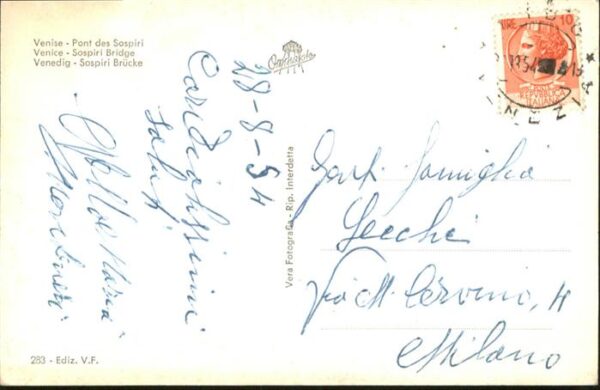 Venise - Pont des Sospiri
Venice - Sospiri Bridge
Venedig - Sospiri Brücke
28-8-54
Cordialissimi
saluti
Vera Fotografia - Rip. Interdetta
LIRE 10
POSTE
REPUBBLICA
ITALIANA
VENEZIA
Gent. Famiglia
Lecchi
Via M. Cervino, 4
Milano
283 - Ediz. V.F.